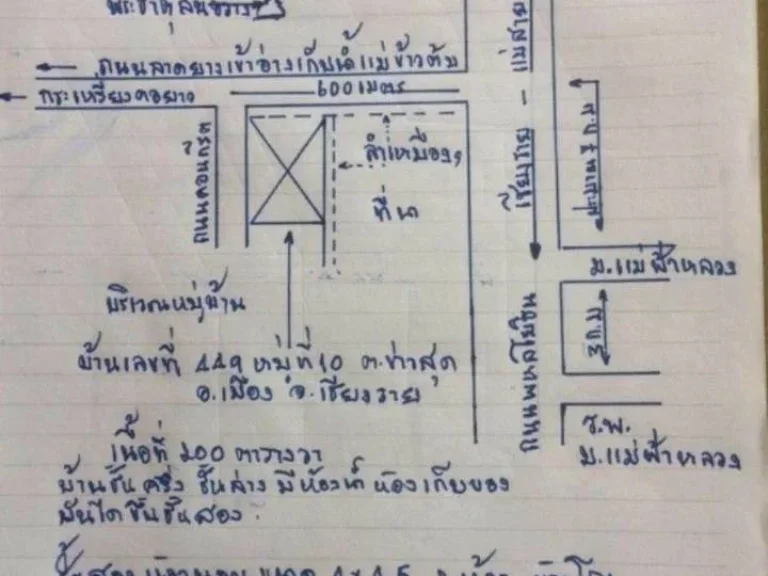 ถนนลาดยางเข้าอ่างเก็บน้ำแม่ข้าวต้ม
กระเหรี่ยงคอยาว
600 เมตร
ถนนคอนกรีต
ลำเหมือง
ที่นา
เชียงราย - แม่สาย
ประมาณ 7 ก.ม
ม.แม่ฟ้าหลวง
3 ก.ม
ถนนพหลโยธิน
บริเวณหมู่บ้าน
บ้านเลขที่ 449 หมู่ที่ 10 ต.ท่าสุด
อ.เมือง จ.เชียงราย
ร.พ.
ม.แม่ฟ้าหลวง
เนื้อที่ 200 ตารางวา
บ้านชั้นครึ่ง ชั้นล่าง มีห้องน้ำ ห้องเก็บของ
บันไดขึ้นชั้นสอง